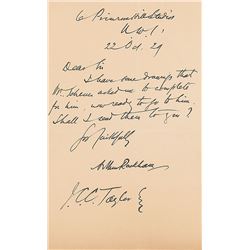 6 Primrose Hill Studios
N.W.1
22 Oct. 29
Dear Sir
I have some drawings that
Mr. asked me to complete
for him, now ready to go to him.
Shall I send them to you?
Yrs faithfully
Arthur Rackham
J. C. C. Taylor Esq